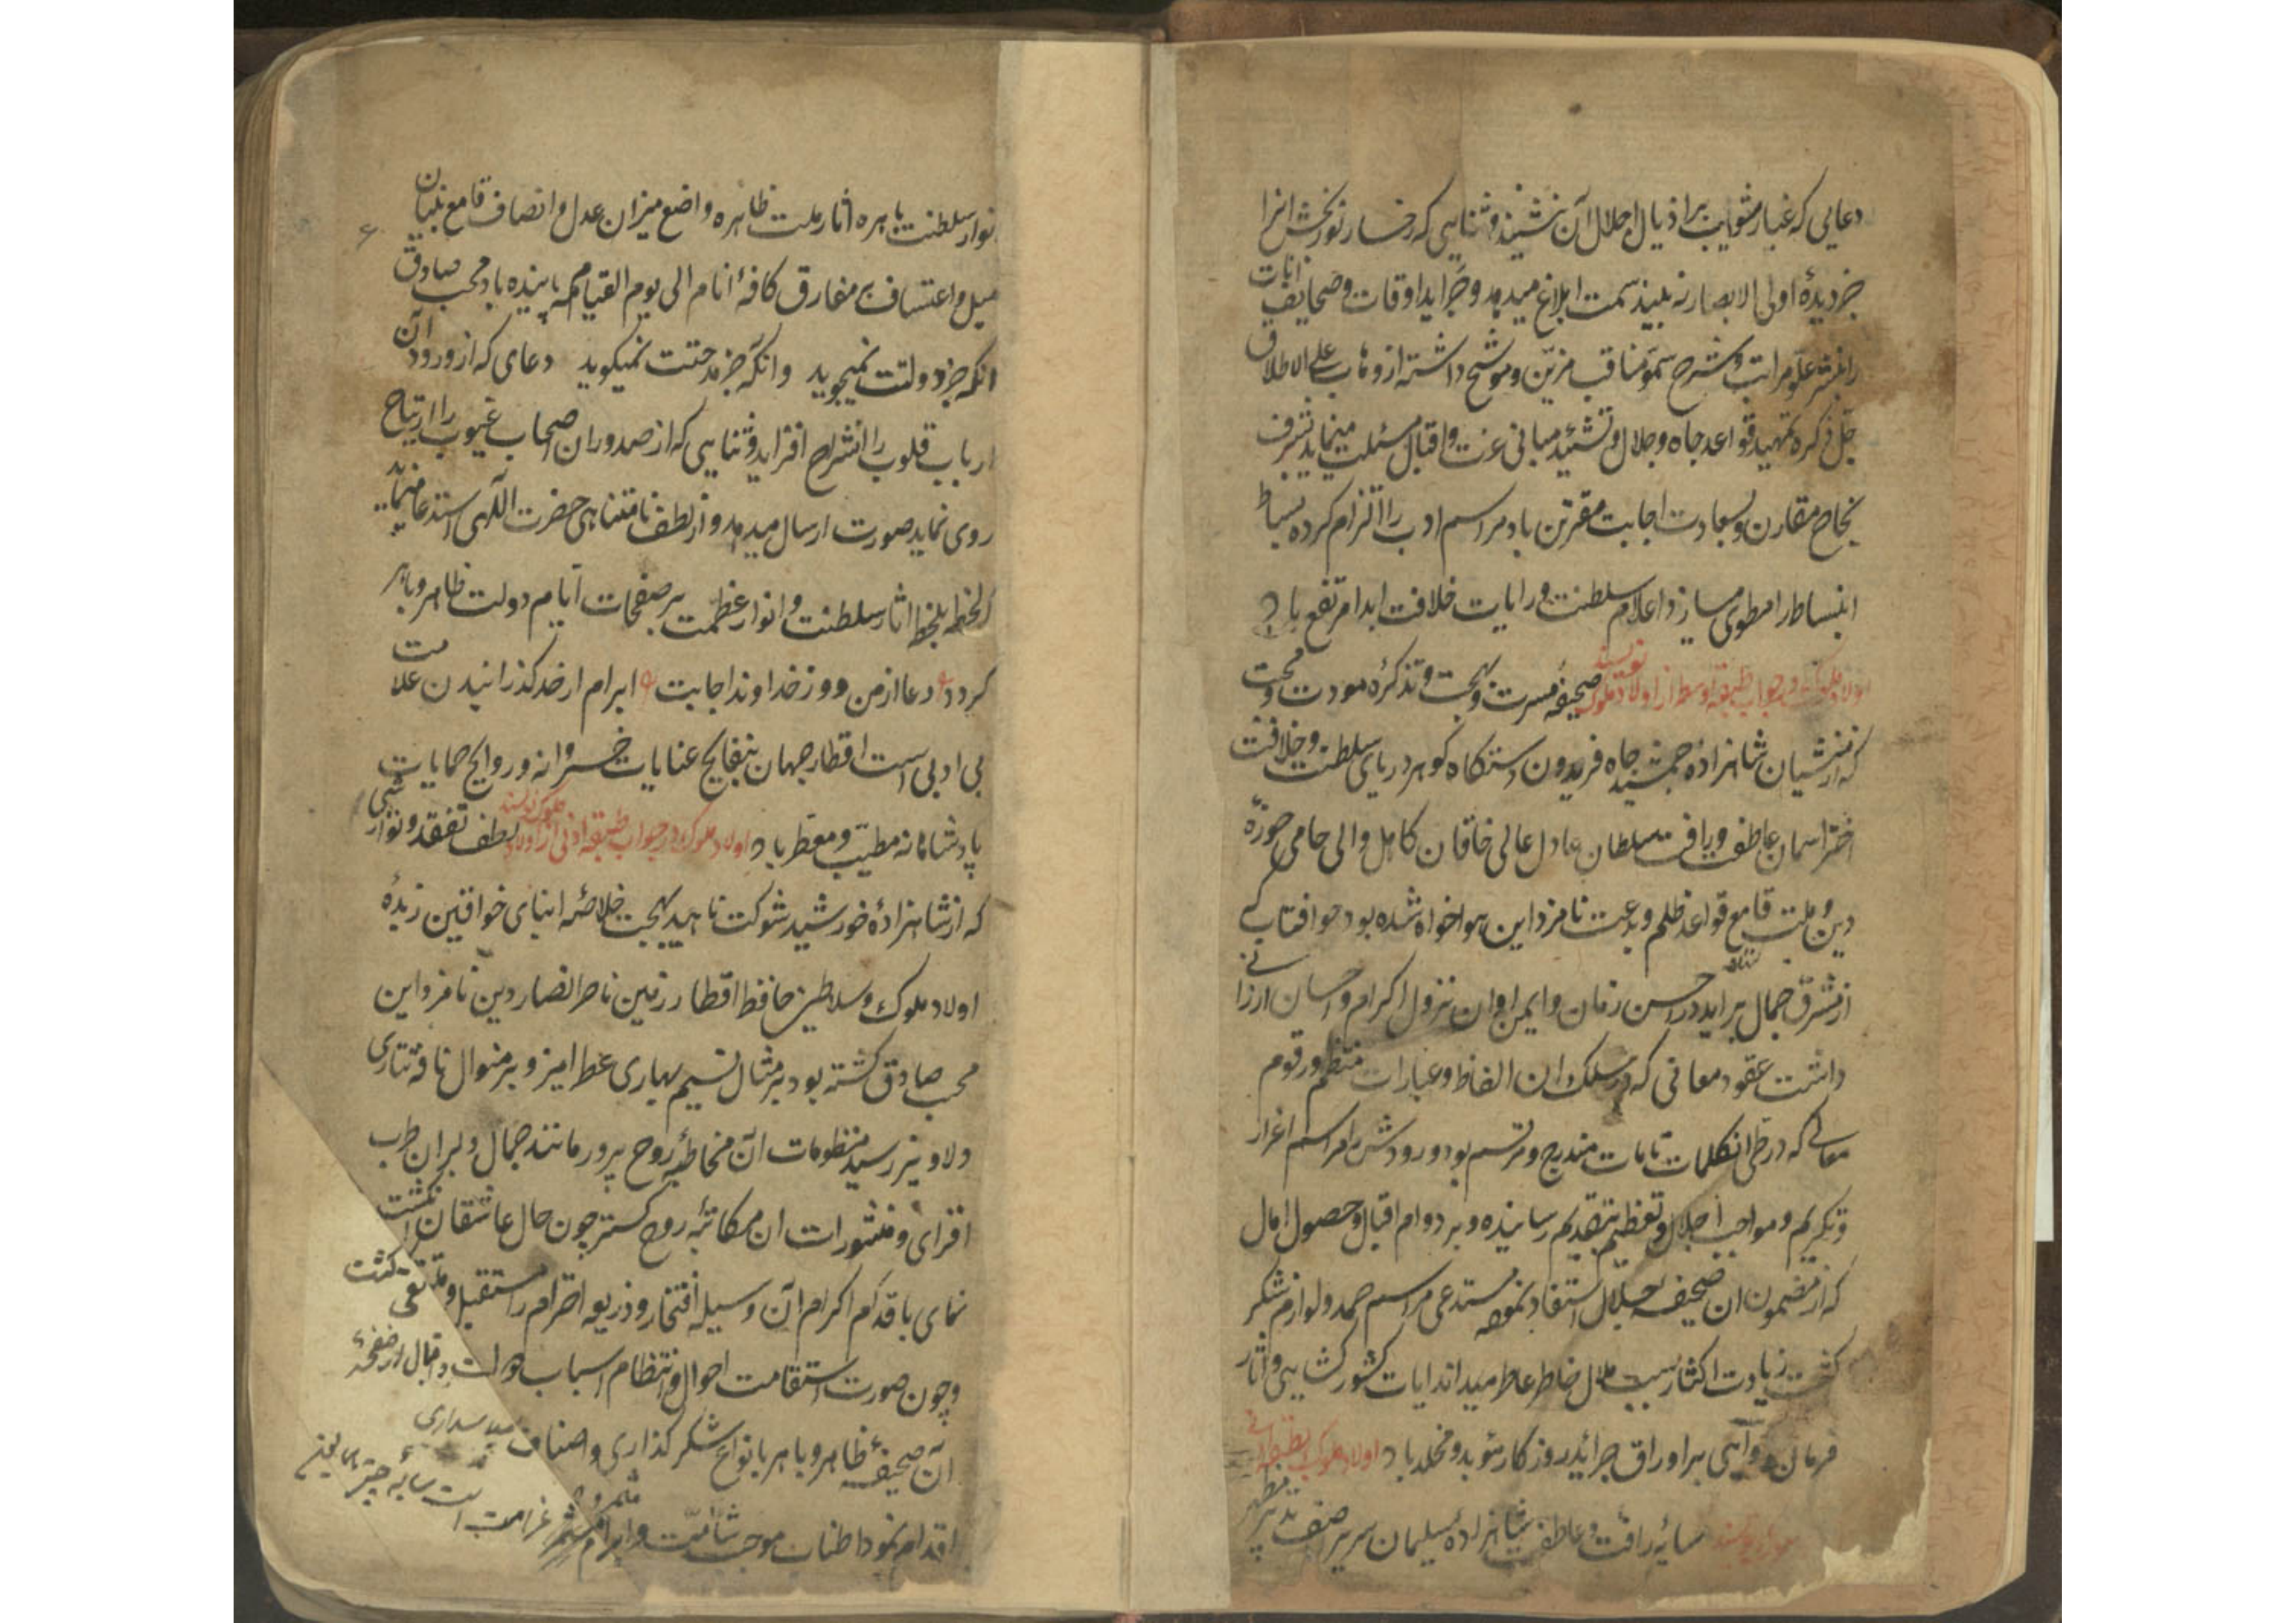 دعایی که غبار شوایب بر اذیال اجلال آن ننشیند و ثنایی که رخسار نوربخش انرا
جز دیدهٔ اولی الابصار نه بیند سمت ابلاغ میدهد و جراید اوقات و صحایف انات
را بنشر علو مراتب و شرح سمو مناقب مزین و موشح داشته از وهاب علی الاطلاق
جل ذکره تمهید قواعد جاه و جلال و تشئید مبانی عزت و اقبال مسئلت مینماید بشرف
نجاح مقارن و بسعادت اجابت مقترن باد مراسم ادب را التزام کرده بساط
انبساط را مطوی میسازد اعلام سلطنت و رایات خلافت ابدا مرتفع باد
اولاد ملوک در جواب طبقه اوسط از اولاد ملوک نویسند صحیفهٔ مسرت و بهجت و تذکرهٔ مودت و محبت
که از منشیان شاهزادهٔ جمشید جاه فریدون دستکاه کوهر دریای سلطنت و خلافت
اختر اسمان عاطفت و رافت سلطان عادل عالی خاقان کامل والی حامی حوزهٔ
دین و ملت قامع قواعد ظلم و بدعت نامزد این هواخواه شده بود چو افتاب که
از مشرق جمال براید در احسن زمان و ایمن اوان نزول اکرام و احسان ارزانی
داشت عقود معانی که در سلک ان الفاظ و عبارات منتظم و رقوم
معالی که در طی انکلمات تامات مندرج و مرتسم بود ورودش را مراسم اعزاز
و تکریم و مواجب اجلال و تعظیم بتقدیم رسانیده و بر دوام اقبال و حصول امال
که از مضمون ان صحیفه جلال استفاد نموده مستدعی مراسم حمد و لوازم شکر
کشت زیادت اکثار سبب ملال خاطر عاطر میداند ایات کشورکشایی و اثار
فرمان روایی بر اوراق جراید روزکار مؤبد و مخلد باد اولاد ملوک بطبقهٔ
سایهٔ رافت و عاطفت شاهزادهٔ سلیمان سریر اصف تدبیر مظهر
انوار سلطنت باهره اثار ملت ظاهره واضع میزان عدل و انصاف قامع بنیان
میل و اعتساف بر مفارق کافهٔ انام الی یوم القیامه پاینده باد محب صادق
انکه جز دولتت نمیجوید وانکه جز مدحتت نمیکوید دعای که از ورود آن
ارباب قلوب را انشراح افزاید و ثنایی که از صدور ان اصحاب غیوب را ارتیاح
روی نماید صورت ارسال میدهد و از لطف نامتناهی حضرت الهی استدعا مینماید
که لحظه بلحظه اثار سلطنت و انوار عظمت بر صفحات ایام دولت ظاهر و باهر
کردد دعا از من و وز خداوند اجابت ابرام از حد کذرانیدن علامت
بی ادبی است اقطار جهان بنفایح عنایات خسروانه و روایح حمایات
پادشاهانه مطیب و معطر باد اولاد ملوک در جواب طبقه ادنی از اولاد ملوک نویسند لطف تفقد و نوازشی
که از شاهزادهٔ خورشید شوکت ناهید بهجت خلاصه ابنای خواقین زبدهٔ
اولاد ملوک و سلاطین حافظ اقطار زمین ناصر انصار دین نامزد این
محب صادق کشته بود بر مثال نسیم بهاری عطرامیز و بر منوال نافه تتاری
دلاویز رسید منظومات آن مخاطبهٔ روح پرور مانند جمال دلبران طرب
افزای و منثورات ان مکاتبه روح کستر چون حال عاشقان انکشت
نمای باقدام اکرام آن وسیله افتخار و ذریعه احترام را مستقبل و متلقی کشت
و چون صورت استقامت احوال و انتظام اسباب دولت و اقبال از صفحهٔ
آن صحیفه ظاهر و باهر بانواع شکرکذاری و اصناف سپاسداری
اقدام نمود اطناب موجب شامت و ابرام مثمر غرامت است سایه چتر